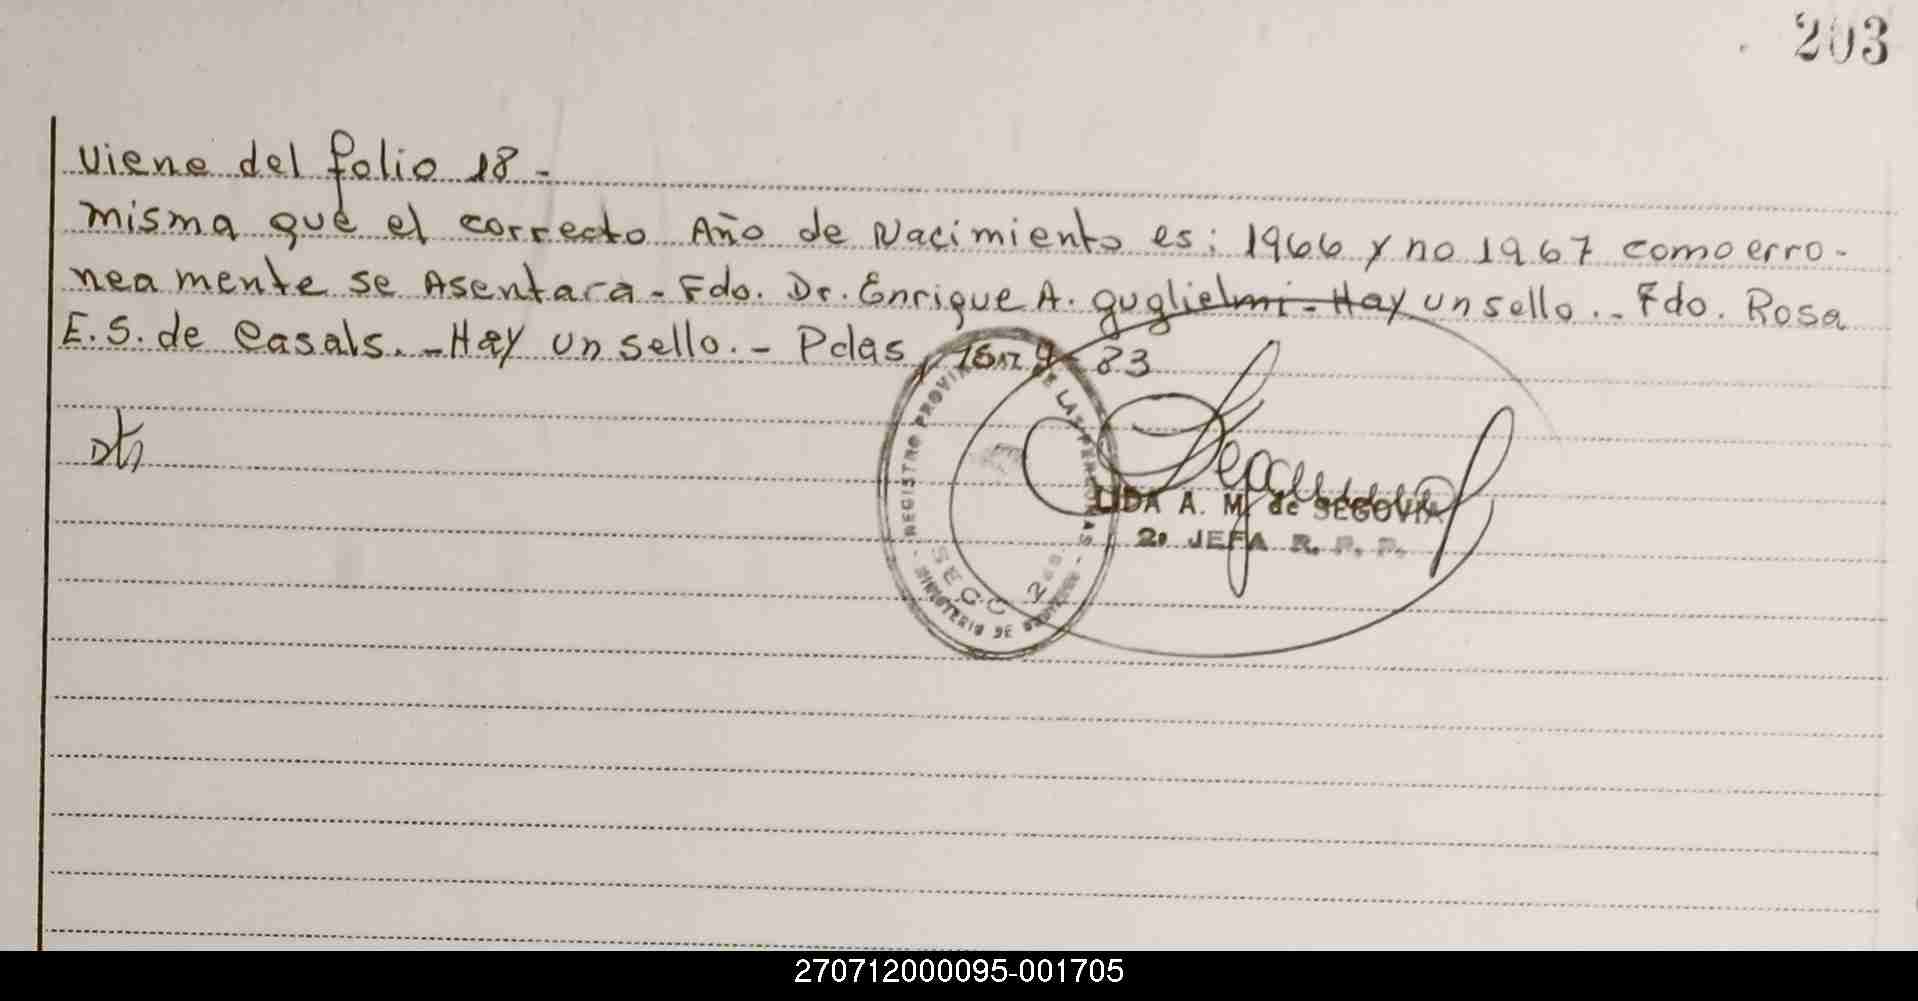 203
Viene del folio 18 -
misma que el correcto Año de Nacimiento es: 1966 y no 1967 como erro-
neamente se Asentara - Fdo. Dr. Enrique A. guglielmi - Hay un sello. - Fdo. Rosa
E. S. de Casals. - Hay un sello. - Pdas, 83
REGISTRO PROVIN DE LAS PERSONAS
LIDA A. M. de SEGOVIA
2º JEFA R. P. P.
270712000095-001705